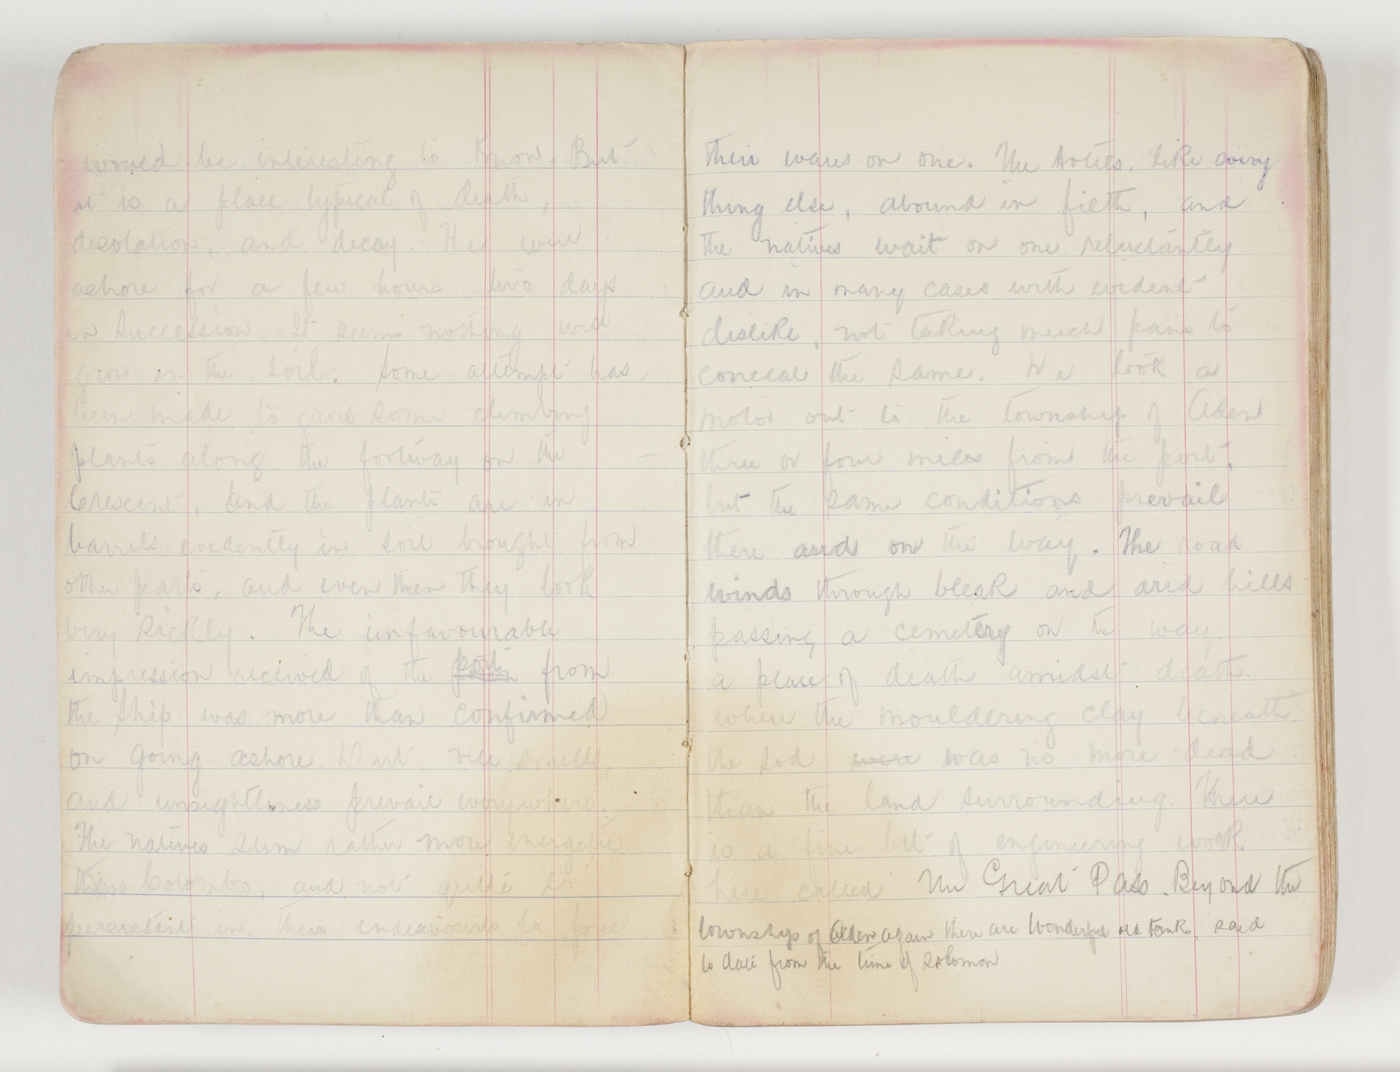 would be interesting to know. But
it is a place typical of death,
desolation, and decay. We were
ashore for a few hours two days
in succession. It seems nothing will
grow in the soil. Some attempt has
been made to grow some climbing
plants along the footway on the
Crescent, and the plants are in
barrels evidently in soil brought from
other parts, and even then they look
very sickly. The unfavourable
impression received of the port from
the ship was more than confirmed
on going ashore. Dirt vile smells,
and unsightliness prevail everywhere.
The natives seem rather more energetic
than Colombo, and not quite so
persistent in their endeavours to force
their wares on one. The hotels, like every
thing else, abound in filth, and
the natives wait on one reluctantly
and in many cases with evident
dislike, not taking much pains to
conceal the same. We took a
motor out to the township of Aden
three or four miles from the port,
but the same conditions prevail
there and on the way. The road
winds through bleak and arid hills
passing a cemetery on the way,
a place of death amidst death.
where the mouldering clay beneath
the sod were was no more dead
than the land surrounding. There
is a fine bit of engineering work
here called The Great Pass. Beyond the
township of Aden again there are wonderful old tanks, said
to date from the time of Solomon